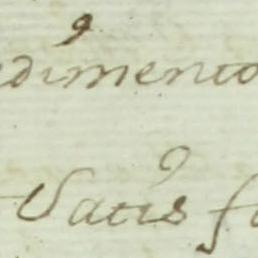 edimento
Satis fa